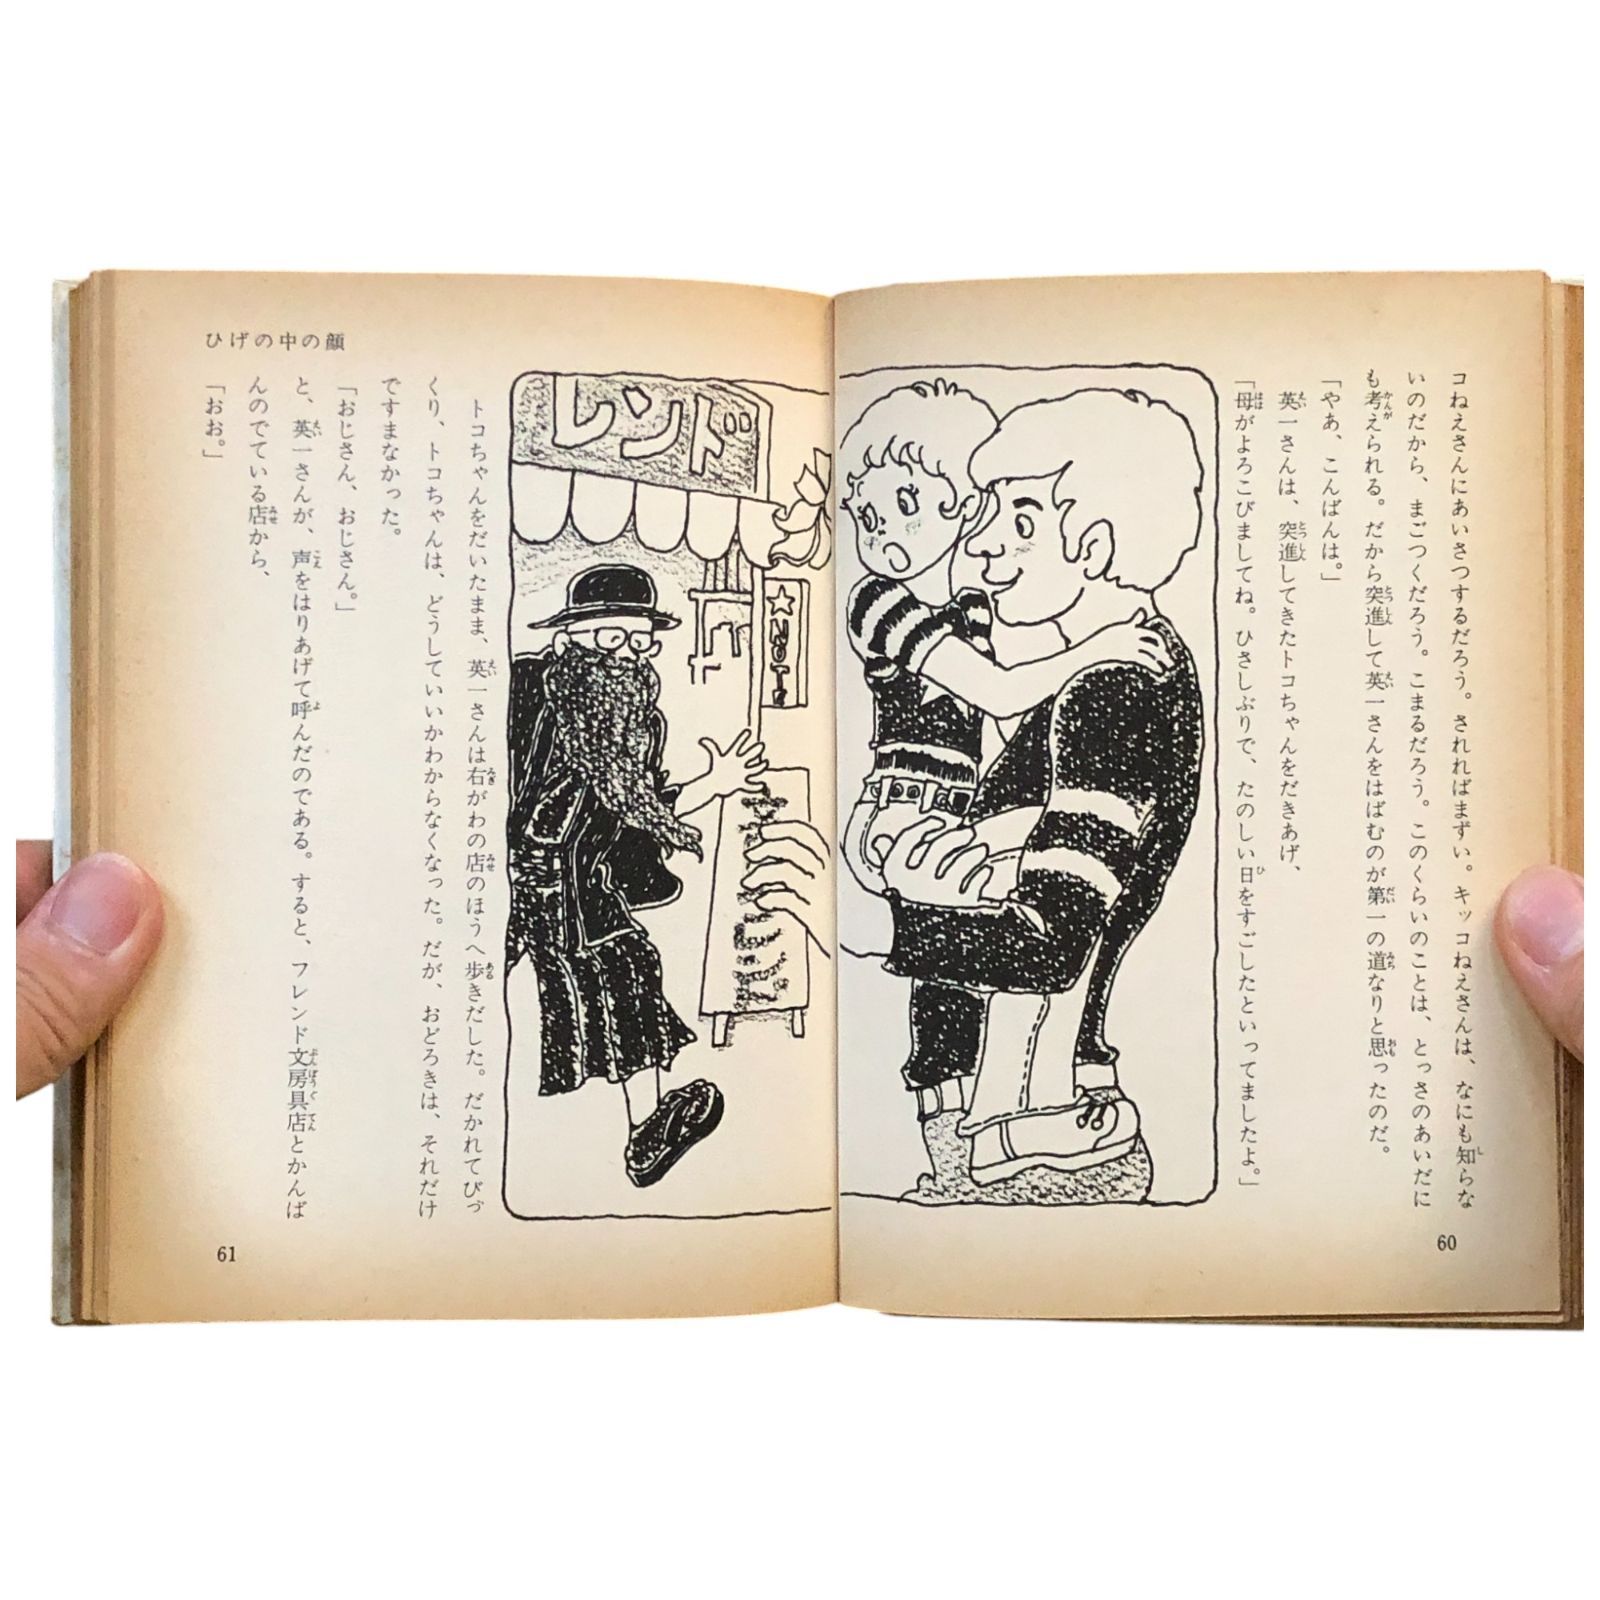 コねえさんにあいさつするだろう。されればまずい。キッコねえさんは、なにも知らな
いのだから、まごつくだろう。こまるだろう。このくらいのことは、とっさのあいだに
も考えられる。だから突進して英一さんをはばむのが第一の道なりと思ったのだ。
「やあ、こんばんは。」
英一さんは、突進してきたトコちゃんをだきあげ、
「母がよろこびましてね。ひさしぶりで、たのしい日をすごしたといってましたよ。」
60
レンド
★NOTE
トコちゃんをだいたまま、英一さんは右がわの店のほうへ歩きだした。だかれてびっ
くり、トコちゃんは、どうしていいかわからなくなった。だが、おどろきは、それだけ
ですまなかった。
「おじさん、おじさん。」
と、英一さんが、声をはりあげて呼んだのである。すると、フレンド文房具店とかんば
んのでている店から、
「おお。」
ひげの中の顔
61